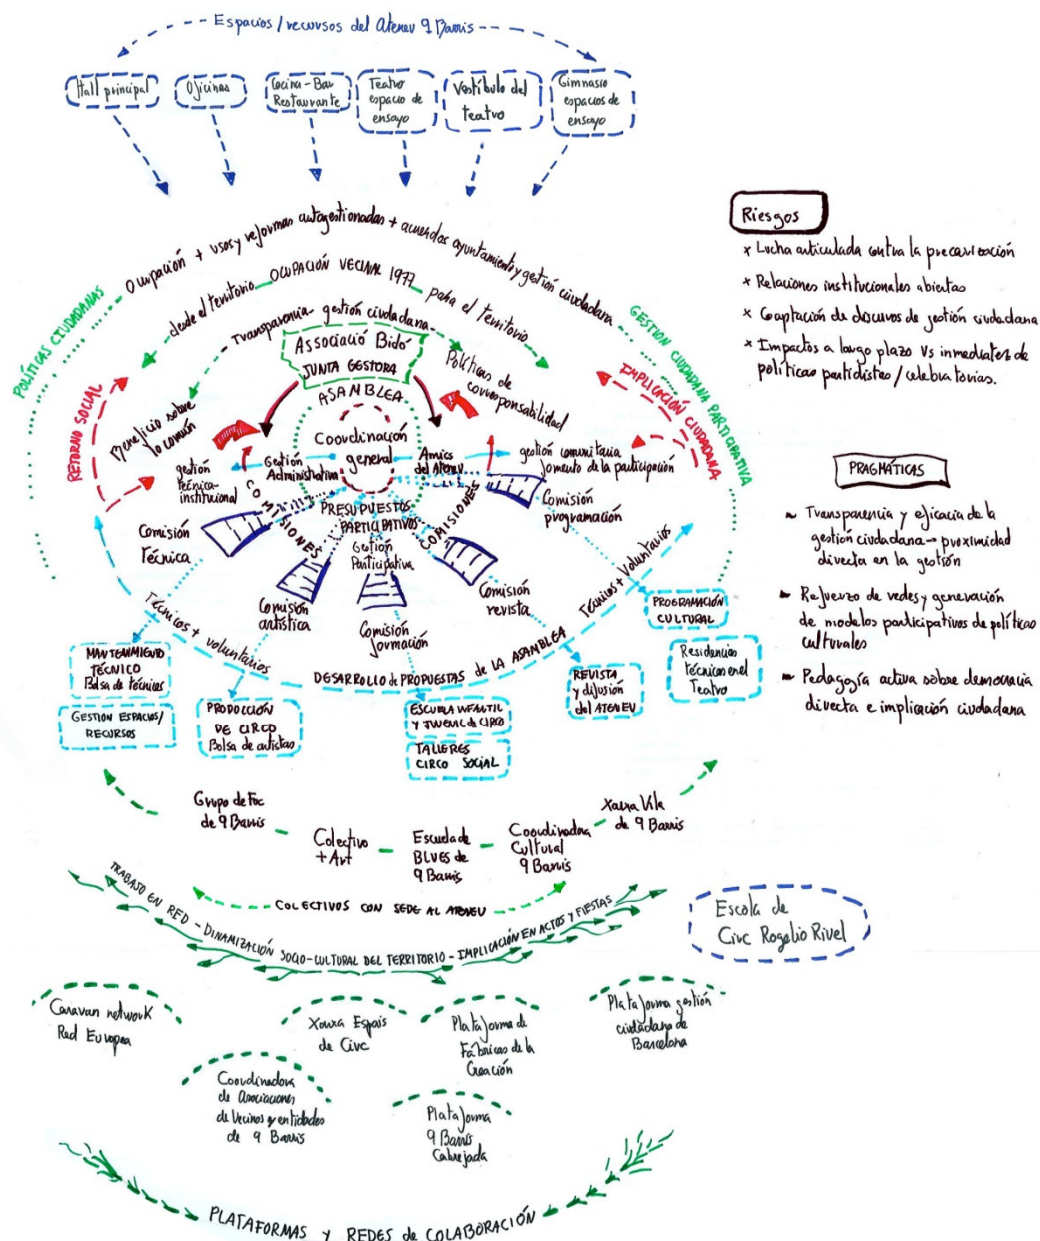 Espacios/recursos del Ateneu 9 Barris
Hall principal
Oficinas
Cocina-Bar
Restaurante
Teatro
espacio de
ensayo
Vestíbulo del
teatro
Gimnasio
espacios de
ensayo
Ocupación + usos y reformas autogestionadas + acuerdos ayuntamiento y gestión ciudadana
POLÍTICAS CIUDADANAS
GESTION CIUDADANA PARTICIPATIVA
desde el territorio OCUPACIÓN VECINAL 1977 para el territorio
Transparencia - gestión ciudadana
RETORNO SOCIAL
IMPLICACIÓN CIUDADANA
Beneficio sobre
lo común
Políticas de
corresponsabilidad
Associació Bidó
JUNTA GESTORA
ASAMBLEA
Coordinación
general
gestión
técnica-
institucional
Gestión
Administrativa
Amics
del Ateneu
gestión comunitaria
fomento de la participación
COMISIONES
COMISIONES
PRESUPUESTOS
PARTICIPATIVOS
Gestión
Participativa
Comisión
Técnica
Comisión
artística
Comisión
formación
Comisión
revista
Comisión
programación
Técnicos + voluntarios
DESARROLLO de PROPUESTAS de LA ASAMBLEA
Técnicos + Voluntarios
MANTENIMIENTO
TÉCNICO
Bolsa de técnicos
GESTION ESPACIOS/
RECURSOS
PRODUCCIÓN
DE CIRCO
Bolsa de artistas
ESCUELA INFANTIL
Y JUVENIL DE CIRCO
TALLERES
CIRCO SOCIAL
REVISTA
y difusión
del ATENEU
PROGRAMACIÓN
CULTURAL
Residencias
técnicas en el
Teatro
Grupo de Foc
de 9 Barris
Colectivo
+ Art
Escuela de
BLUES de
9 Barris
Coordinadora
Cultural
9 Barris
Xarxa Vila
de 9 Barris
COLECTIVOS CON SEDE AL ATENEU
TRABAJO EN RED - DINAMIZACIÓN SOCIO-CULTURAL DEL TERRITORIO - IMPLICACIÓN EN ACTOS Y FIESTAS
Escola de
Circ Rogelio Rivel
Caravan network
Red Europea
Xarxa Espais
de Circ
Plataforma de
Fábricas de la
Creación
Plataforma gestión
ciudadana de
Barcelona
Coordinadora
de Asociaciones
de Vecinos y entidades
de 9 Barris
Plataforma
9 Barris
Cabrejada
PLATAFORMAS y REDES de COLABORACIÓN
Riesgos
x Lucha articulada contra la precarización
x Relaciones institucionales abiertas
x Coaptación de discursos de gestión ciudadana
x Impactos a largo plazo Vs inmediatos de
políticas partidistas / celebratorias.
PRAGMÁTICAS
~ Transparencia y eficacia de la
gestión ciudadana → proximidad
directa en la gestión
~ Refuerzo de redes y generación
de modelos participativos de políticas
culturales
~ Pedagogía activa sobre democracia
directa e implicación ciudadana